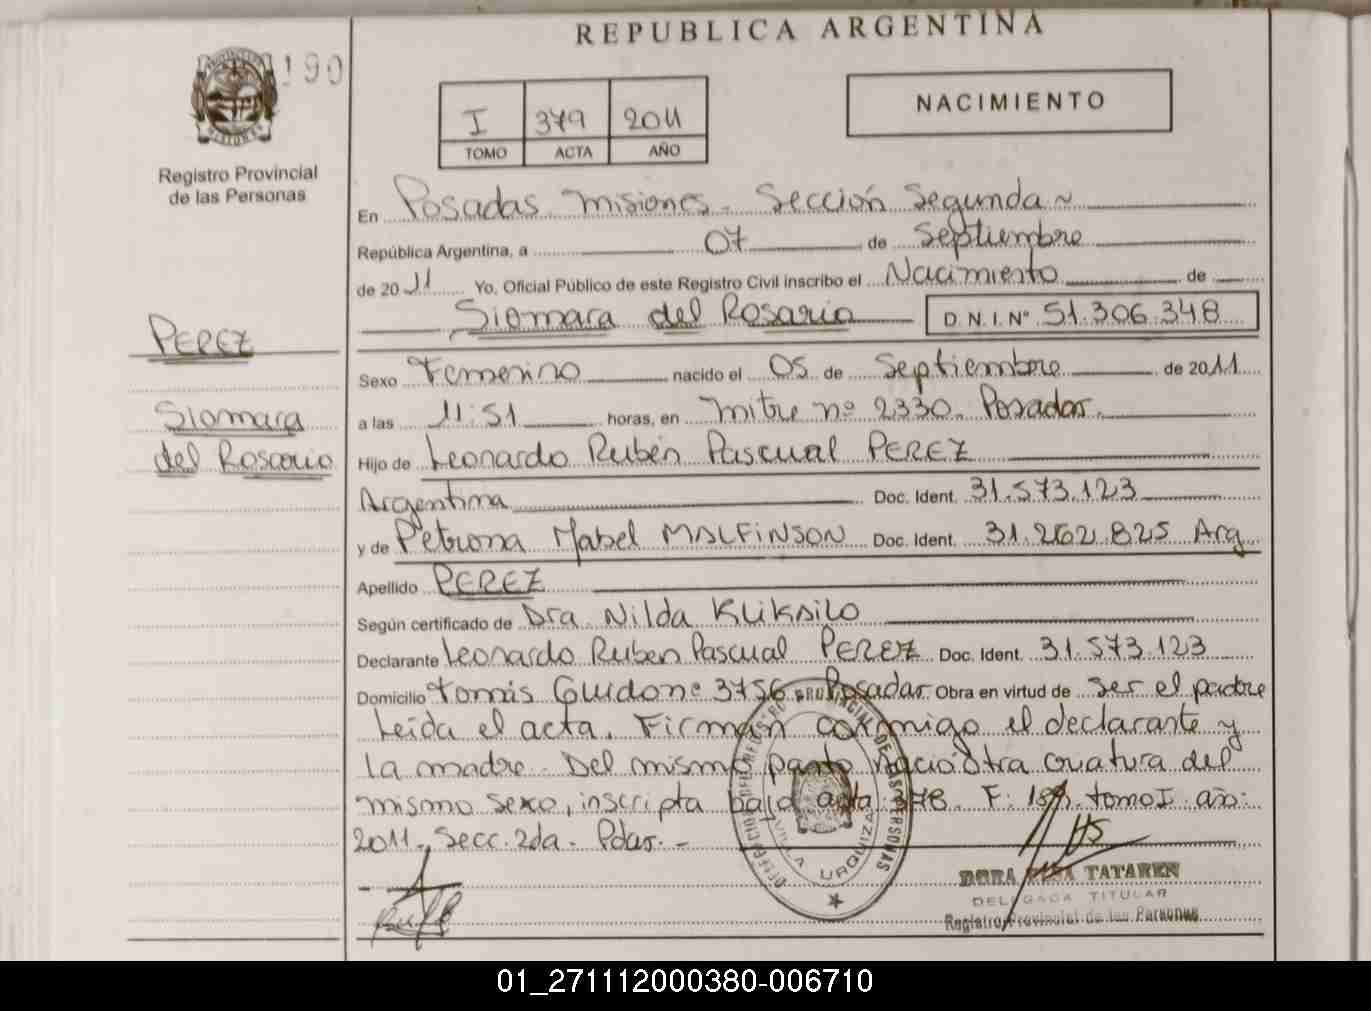 REPUBLICA ARGENTINA
190
I 379 2011
TOMO ACTA AÑO
NACIMIENTO
Registro Provincial
de las Personas
En Posadas Misiones. Sección Segunda
República Argentina, a 07 de Septiembre
de 2011 Yo, Oficial Público de este Registro Civil inscribo el Nacimiento de
Siomara del Rosario D.N.I.Nº 51.306.348
PEREZ
Siomara
del Rosario
Sexo Femenino nacido el 05 de Septiembre de 2011
a las 11:51 horas, en Mitre nº 2330. Posadas.
Hijo de Leonardo Rubén Pascual PEREZ
Argentina Doc. Ident. 31.573.123
y de Petrona Mabel MALFINSON Doc. Ident. 31.262.825 Arg
Apellido PEREZ
Según certificado de Dra Nilda
Declarante Leonardo Ruben Pascual PEREZ Doc. Ident. 31.573.123
Domicilio Tomás Guido nº 3756 Posadas Obra en virtud de ser el padre
Leída el acta. Firman conmigo el declarante y
la madre. Del mismo parto nació otra criatura del
mismo sexo, inscripta bajo acta 378. F. tomo I año:
2011. Secc. 2da. Pdas.-
DELEGACION DEL REGISTRO PROVINCIAL DE LAS PERSONAS
VILLA URQUIZA
DORA TATAREN
DELEGADA TITULAR
Registro Provincial de las Personas
01_271112000380-006710